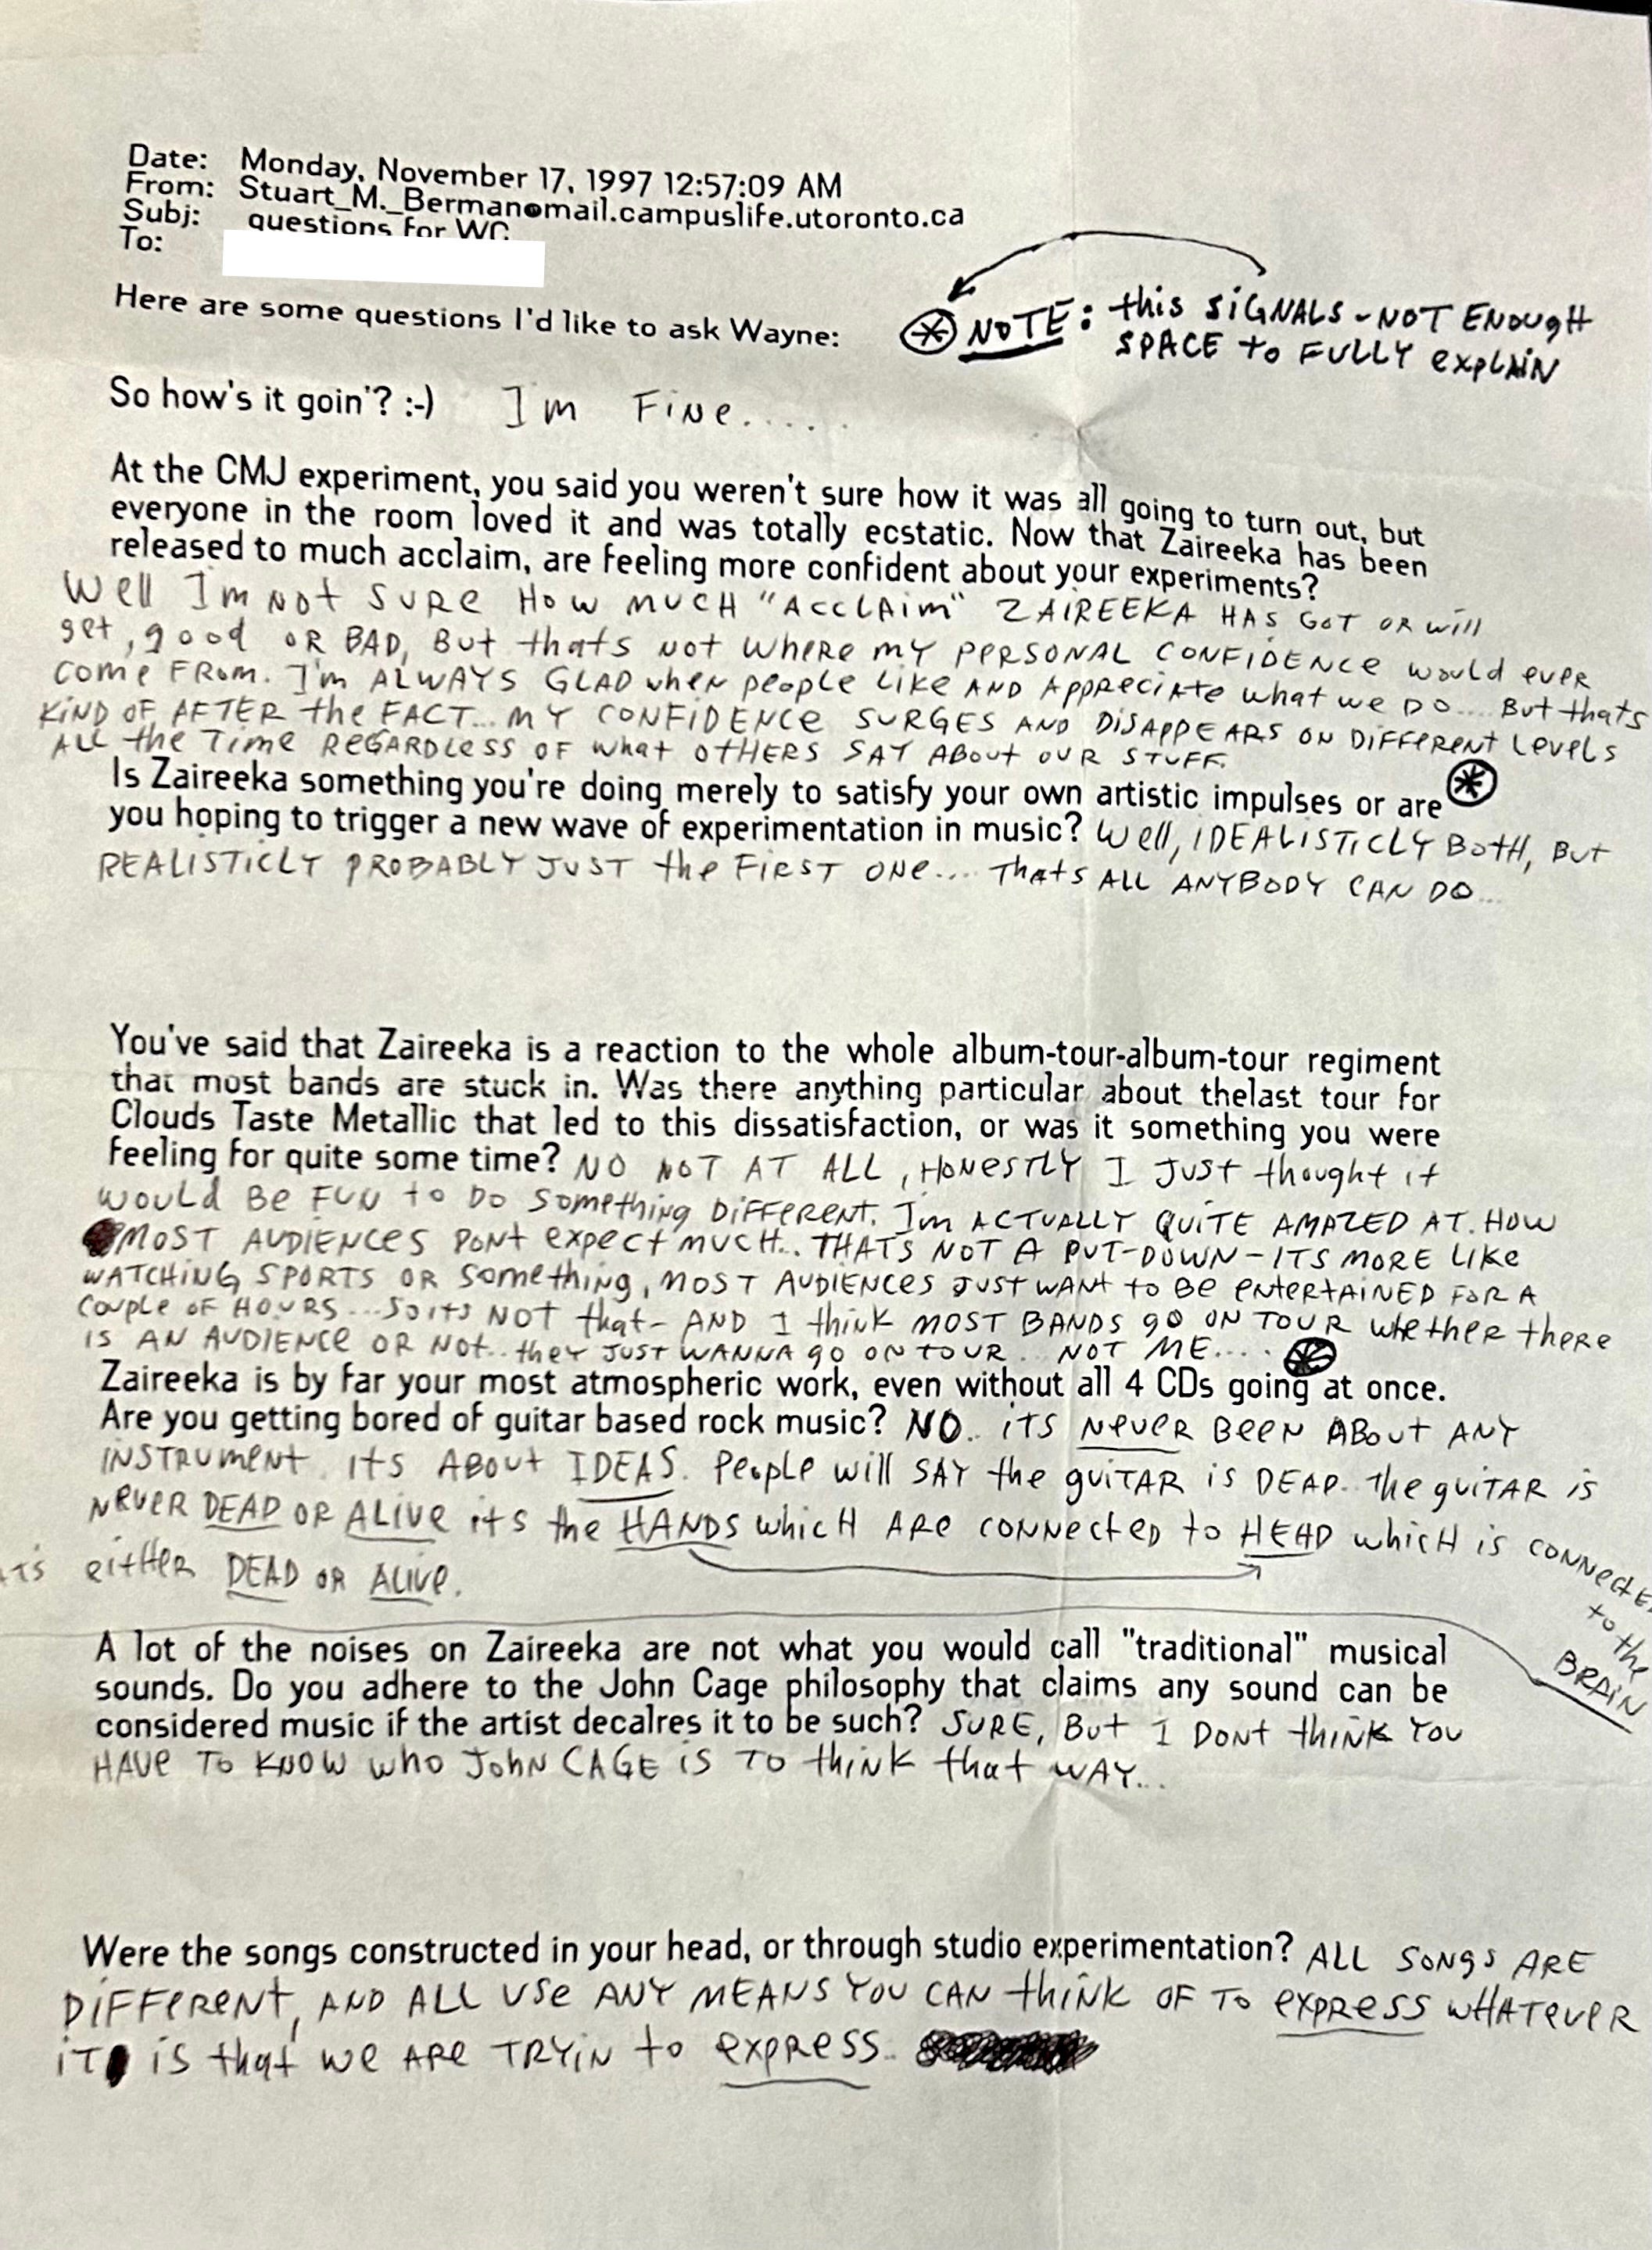 Date: Monday, November 17, 1997 12:57:09 AM
From: Stuart_M._Berman@mail.campuslife.utoronto.ca
Subj: questions for WC
To:
Here are some questions I'd like to ask Wayne:
⊛ NOTE: this SiGNALS - NOT ENOUGH
SPACE to FULLY explAiN
So how's it goin'? :-) I'm FiNe.....
At the CMJ experiment, you said you weren't sure how it was all going to turn out, but
everyone in the room loved it and was totally ecstatic. Now that Zaireeka has been
released to much acclaim, are feeling more confident about your experiments?
Well I'm NOt SURe HOW MUCH "ACCLAim" ZAIREEKA HAS GOT OR will
get, good OR BAD, But thats NOt WHeRe MY PERSONAL CONFiDENCe would eveR
Come FROm. I'm ALWAYS GLAD wheN people Like AND AppReciAte what we DO.... But thats
KiND OF AFTER the FACT... MY CONFiDENCe SURGES AND DiSAPPEARS ON DiFFeReNt Levels
ALL the Time ReGARDLeSS OF what OTHERS SAY ABOut OUR STUFF.
Is Zaireeka something you're doing merely to satisfy your own artistic impulses or are ⊛
you hoping to trigger a new wave of experimentation in music? Well, iDEALiSTiCLY BOtH, BUt
REALiSTiCLY PROBABLY JUST the FiRST ONe.... ThAts ALL ANYBODY CAN DO...
You've said that Zaireeka is a reaction to the whole album-tour-album-tour regiment
that most bands are stuck in. Was there anything particular about thelast tour for
Clouds Taste Metallic that led to this dissatisfaction, or was it something you were
feeling for quite some time? NO NOT AT ALL, HONeSTLY I JUSt thought it
WOULD Be FUN to DO SOmething DiFFERENT. I'm ACTUALLY QUiTE AMAZED AT. HOW
MOST AUDiENCES DONt expect much.. THAT'S NOT A PUT-DOWN - ITS MORE LiKe
WATCHiNG SPORTS OR Something, MOST AUDiENCES JUST WANt TO BE eNteRtAiNED FOR A
COUPLe OF HOURS...SO itS NOT that - AND I thiNK MOST BANDS GO ON TOUR WHetHER theRe
iS AN AUDieNCe OR NOt.. theY JUST WANNA GO ON TOUR... NOT ME.... ⊛
Zaireeka is by far your most atmospheric work, even without all 4 CDs going at once.
Are you getting bored of guitar based rock music? NO.. iTS NeveR BeeN ABOut ANY
iNSTRUmeNt. ItS ABOut IDEAS. People will SAY the guiTAR iS DEAD. The guiTAR iS
NeveR DEAD OR ALiVe it's the HANDS which ARe CONNected to HEAD whicH is CONNecteD
to the
BRAiN
iTS eitHeR DEAD OR ALive.
A lot of the noises on Zaireeka are not what you would call "traditional" musical
sounds. Do you adhere to the John Cage philosophy that claims any sound can be
considered music if the artist decalres it to be such? SURE, BUt I DONt thiNK YOU
HAVe TO KNOW wHO JOhN CAGE iS TO thiNK that WAY...
Were the songs constructed in your head, or through studio experimentation? ALL SONGS ARE
DiFFeReNt, AND ALL USe ANY MEANS YOU CAN thiNK OF TO expRess WHATeveR
iT is that we ARe TRYiN to expRess..